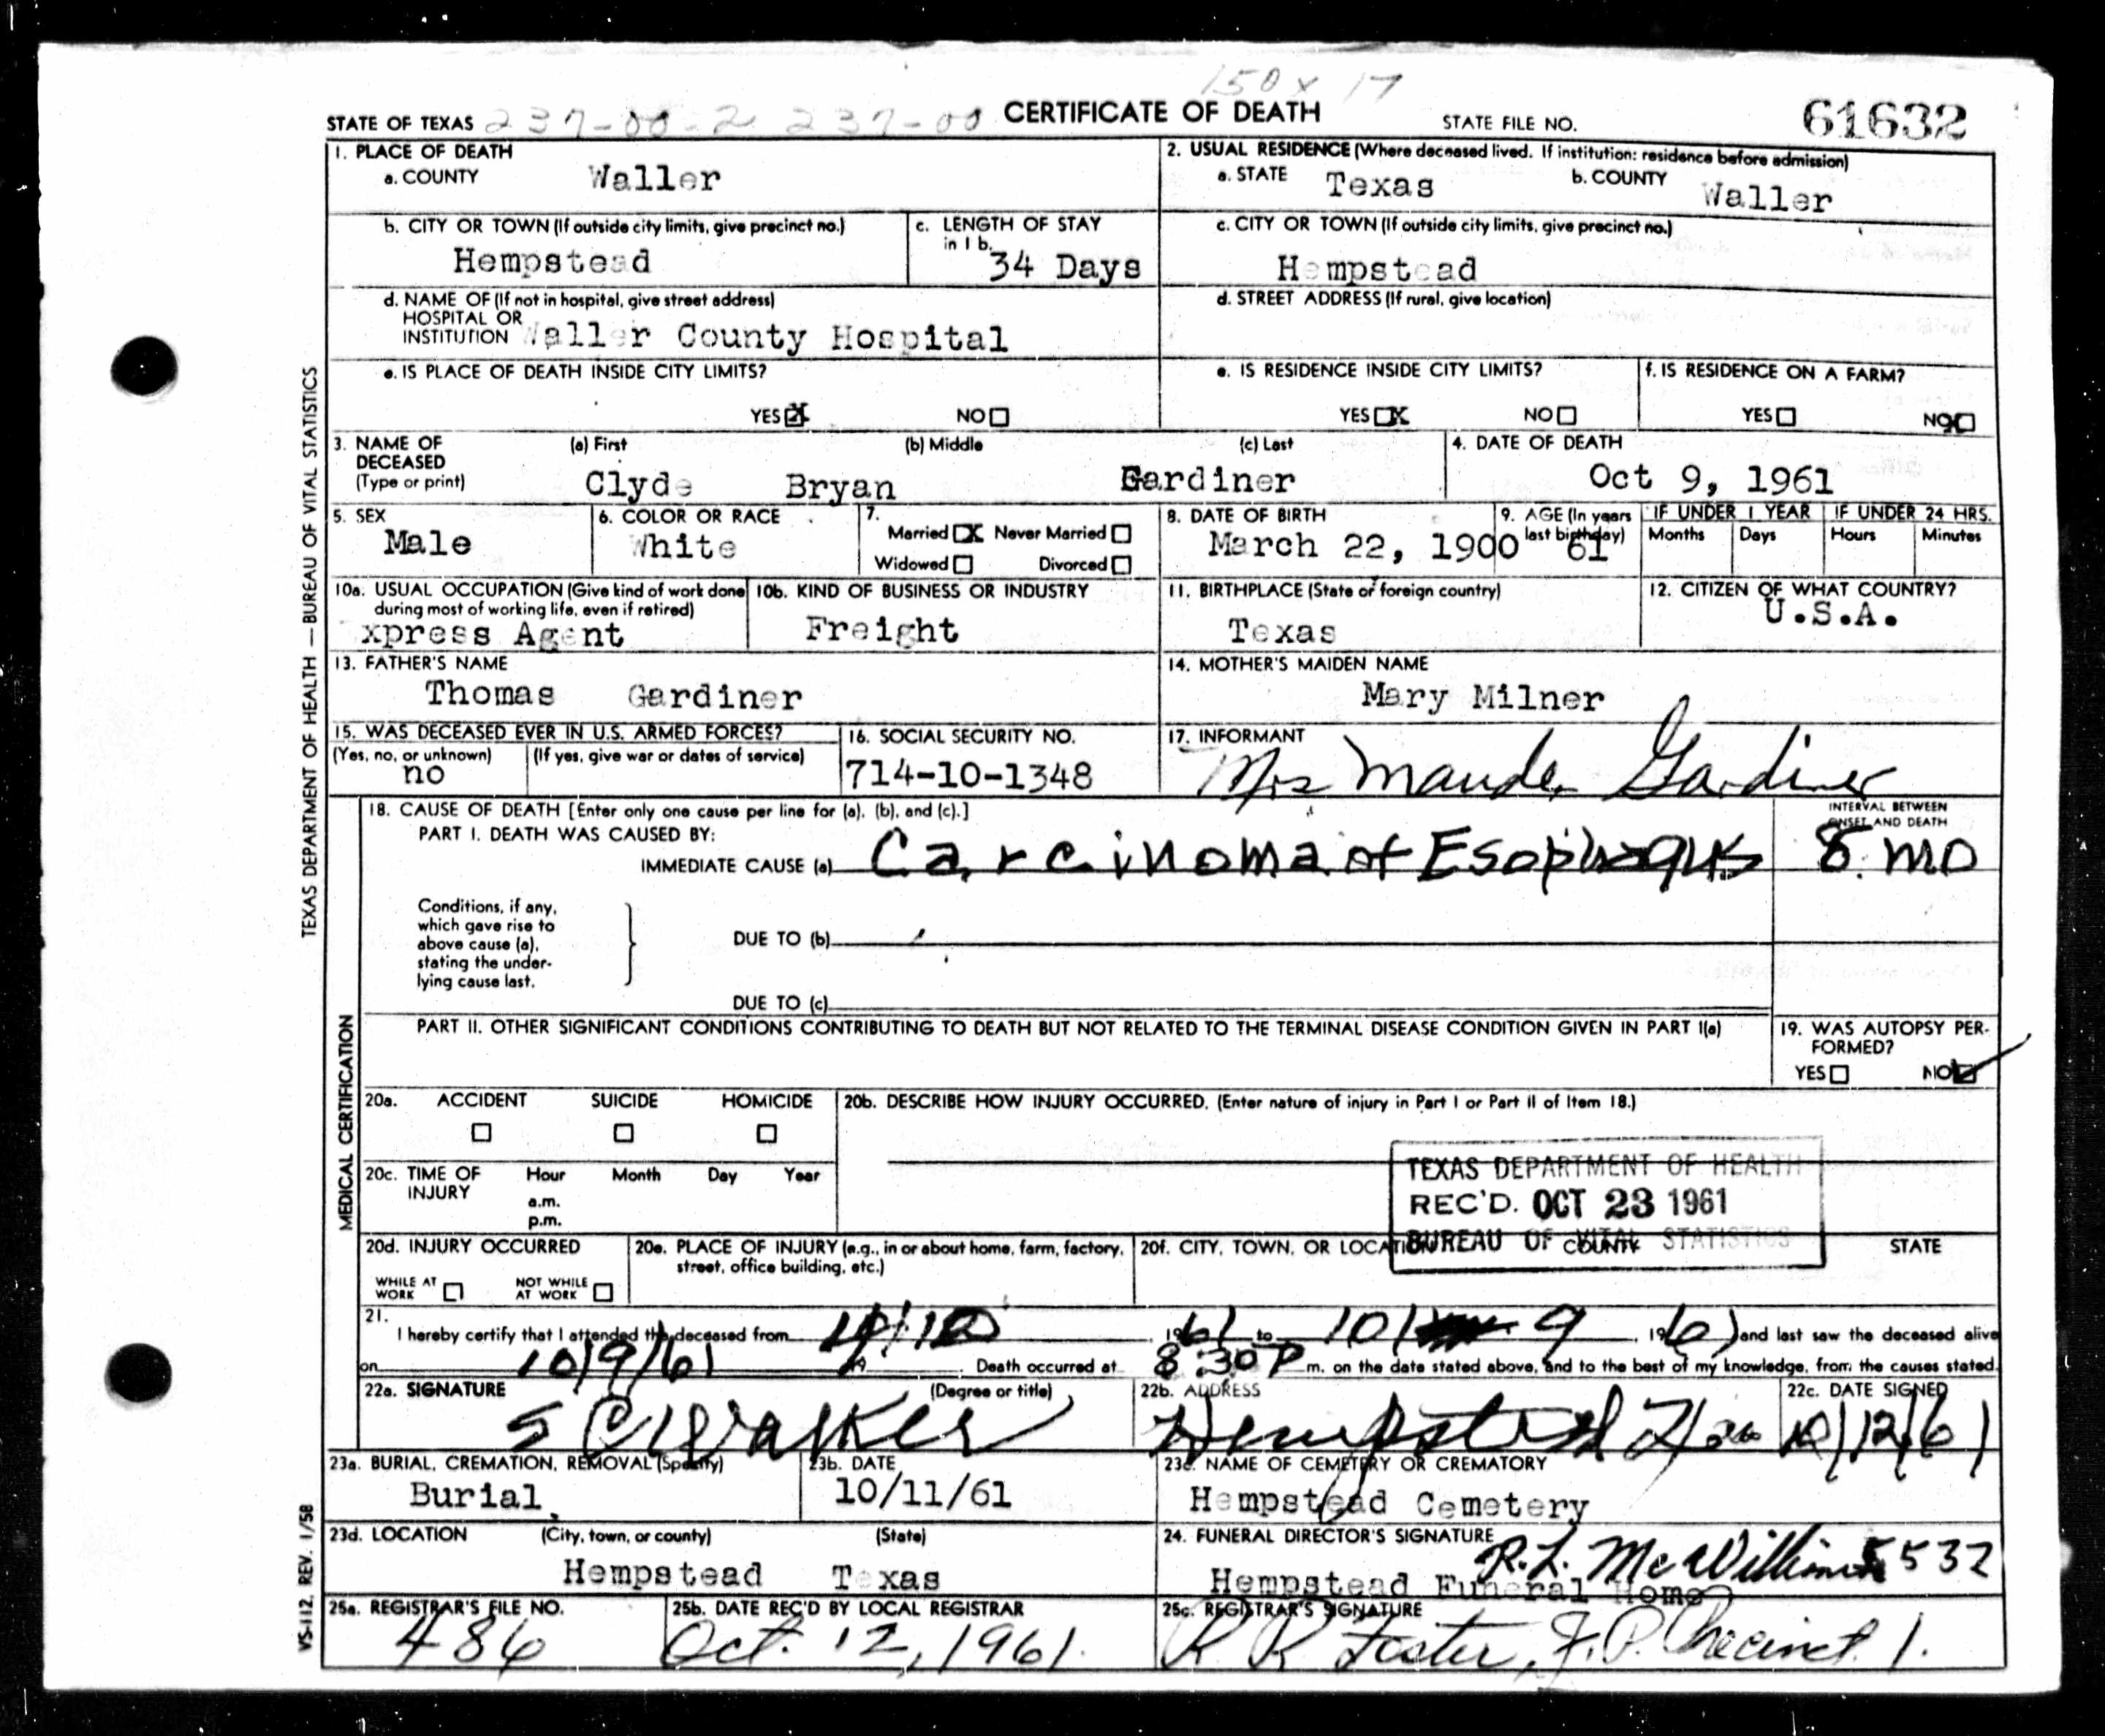 150 x 17
STATE OF TEXAS 237-00-2 237-00 CERTIFICATE OF DEATH STATE FILE NO. 61632
1. PLACE OF DEATH
a. COUNTY Waller
2. USUAL RESIDENCE (Where deceased lived. If institution: residence before admission)
a. STATE Texas b. COUNTY Waller
b. CITY OR TOWN (If outside city limits, give precinct no.)
Hempstead
c. LENGTH OF STAY
in 1 b.
34 Days
c. CITY OR TOWN (If outside city limits, give precinct no.)
Hempstead
d. NAME OF (If not in hospital, give street address)
HOSPITAL OR
INSTITUTION Waller County Hospital
d. STREET ADDRESS (If rural, give location)
e. IS PLACE OF DEATH INSIDE CITY LIMITS?
YES X NO
e. IS RESIDENCE INSIDE CITY LIMITS?
YES X NO
f. IS RESIDENCE ON A FARM?
YES NO X
3. NAME OF DECEASED (Type or print)
(a) First (b) Middle (c) Last
Clyde Bryan Gardiner
4. DATE OF DEATH
Oct 9, 1961
5. SEX
Male
6. COLOR OR RACE
White
7.
Married X Never Married
Widowed Divorced
8. DATE OF BIRTH
March 22, 1900
9. AGE (In years
last birthday)
61
IF UNDER 1 YEAR IF UNDER 24 HRS.
Months Days Hours Minutes
10a. USUAL OCCUPATION (Give kind of work done
during most of working life, even if retired)
xpress Agent
10b. KIND OF BUSINESS OR INDUSTRY
Freight
11. BIRTHPLACE (State or foreign country)
Texas
12. CITIZEN OF WHAT COUNTRY?
U.S.A.
13. FATHER'S NAME
Thomas Gardiner
14. MOTHER'S MAIDEN NAME
Mary Milner
15. WAS DECEASED EVER IN U.S. ARMED FORCES?
(Yes, no, or unknown) (If yes, give war or dates of service)
no
16. SOCIAL SECURITY NO.
714-10-1348
17. INFORMANT
Mrs Maude Gardiner
18. CAUSE OF DEATH [Enter only one cause per line for (a), (b), and (c).]
PART I. DEATH WAS CAUSED BY:
IMMEDIATE CAUSE (a) Carcinoma of Esophagus
INTERVAL BETWEEN
ONSET AND DEATH
8 mo
Conditions, if any,
which gave rise to
above cause (a),
stating the under-
lying cause last.
DUE TO (b)
DUE TO (c)
PART II. OTHER SIGNIFICANT CONDITIONS CONTRIBUTING TO DEATH BUT NOT RELATED TO THE TERMINAL DISEASE CONDITION GIVEN IN PART I(a)
19. WAS AUTOPSY PER-
FORMED?
YES NO
20a. ACCIDENT SUICIDE HOMICIDE
20b. DESCRIBE HOW INJURY OCCURRED. (Enter nature of injury in Part I or Part II of Item 18.)
20c. TIME OF INJURY
Hour Month Day Year
a.m.
p.m.
TEXAS DEPARTMENT OF HEALTH
REC'D. OCT 23 1961
BUREAU OF VITAL STATISTICS
20d. INJURY OCCURRED
WHILE AT WORK NOT WHILE AT WORK
20e. PLACE OF INJURY (e.g., in or about home, farm, factory,
street, office building, etc.)
20f. CITY, TOWN, OR LOCATION COUNTY STATE
21.
I hereby certify that I attended the deceased from 4/10, 1961 to 10/ 9, 1961 and last saw the deceased alive
on 10/9/61. Death occurred at 8:30 P m. on the date stated above, and to the best of my knowledge, from the causes stated.
22a. SIGNATURE (Degree or title)
S C Walker
22b. ADDRESS
Hempstead Tex
22c. DATE SIGNED
10/12/61
23a. BURIAL, CREMATION, REMOVAL (Specify)
Burial
23b. DATE
10/11/61
23c. NAME OF CEMETERY OR CREMATORY
Hempstead Cemetery
23d. LOCATION (City, town, or county) (State)
Hempstead Texas
24. FUNERAL DIRECTOR'S SIGNATURE
R.L. McWilliams 5532
Hempstead Funeral Home
25a. REGISTRAR'S FILE NO.
486
25b. DATE REC'D BY LOCAL REGISTRAR
Oct. 12, 1961.
25c. REGISTRAR'S SIGNATURE
R R Foster, J.P. Precinct 1.
TEXAS DEPARTMENT OF HEALTH — BUREAU OF VITAL STATISTICS
MEDICAL CERTIFICATION
VS-112, REV. 1/58